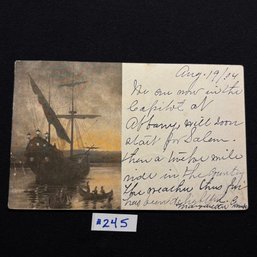 Aug. 19/04
We are now in the
Capitol at
Albany, will soon
start for Salem.
then a twelve mile
ride in the country
The weather thus far
has been delightful.
#245